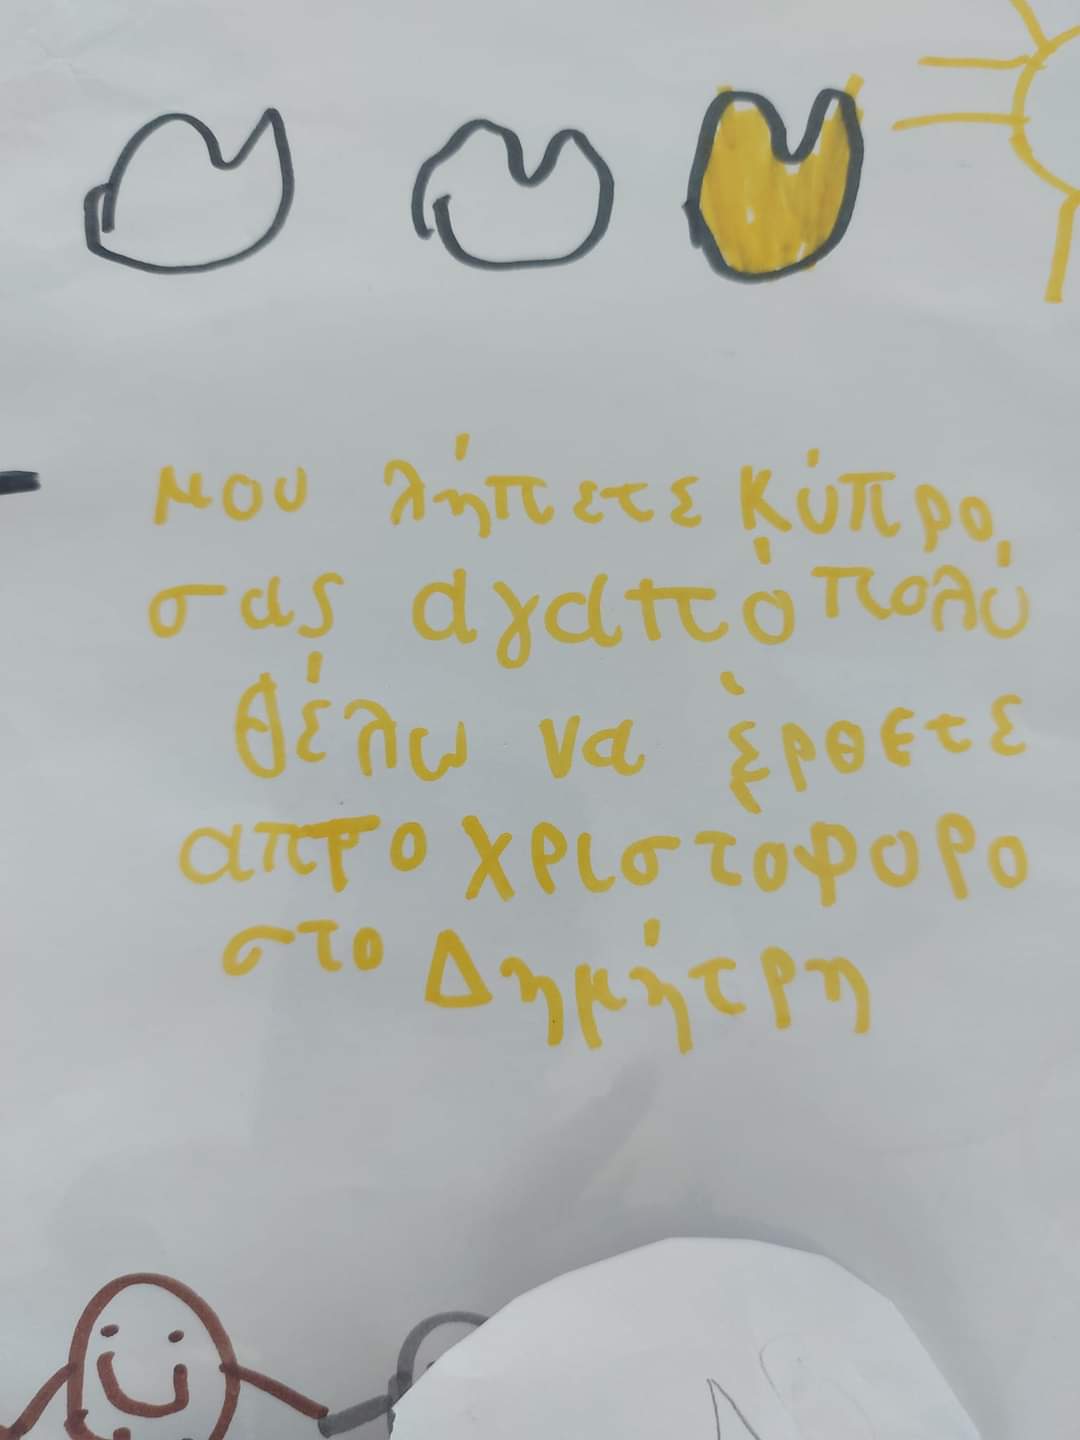 μου λήπετε Κύπρο,
σας αγαπό πολύ
θέλω να έρθετε
απτο χριστοφορο
στο Δημήτρη